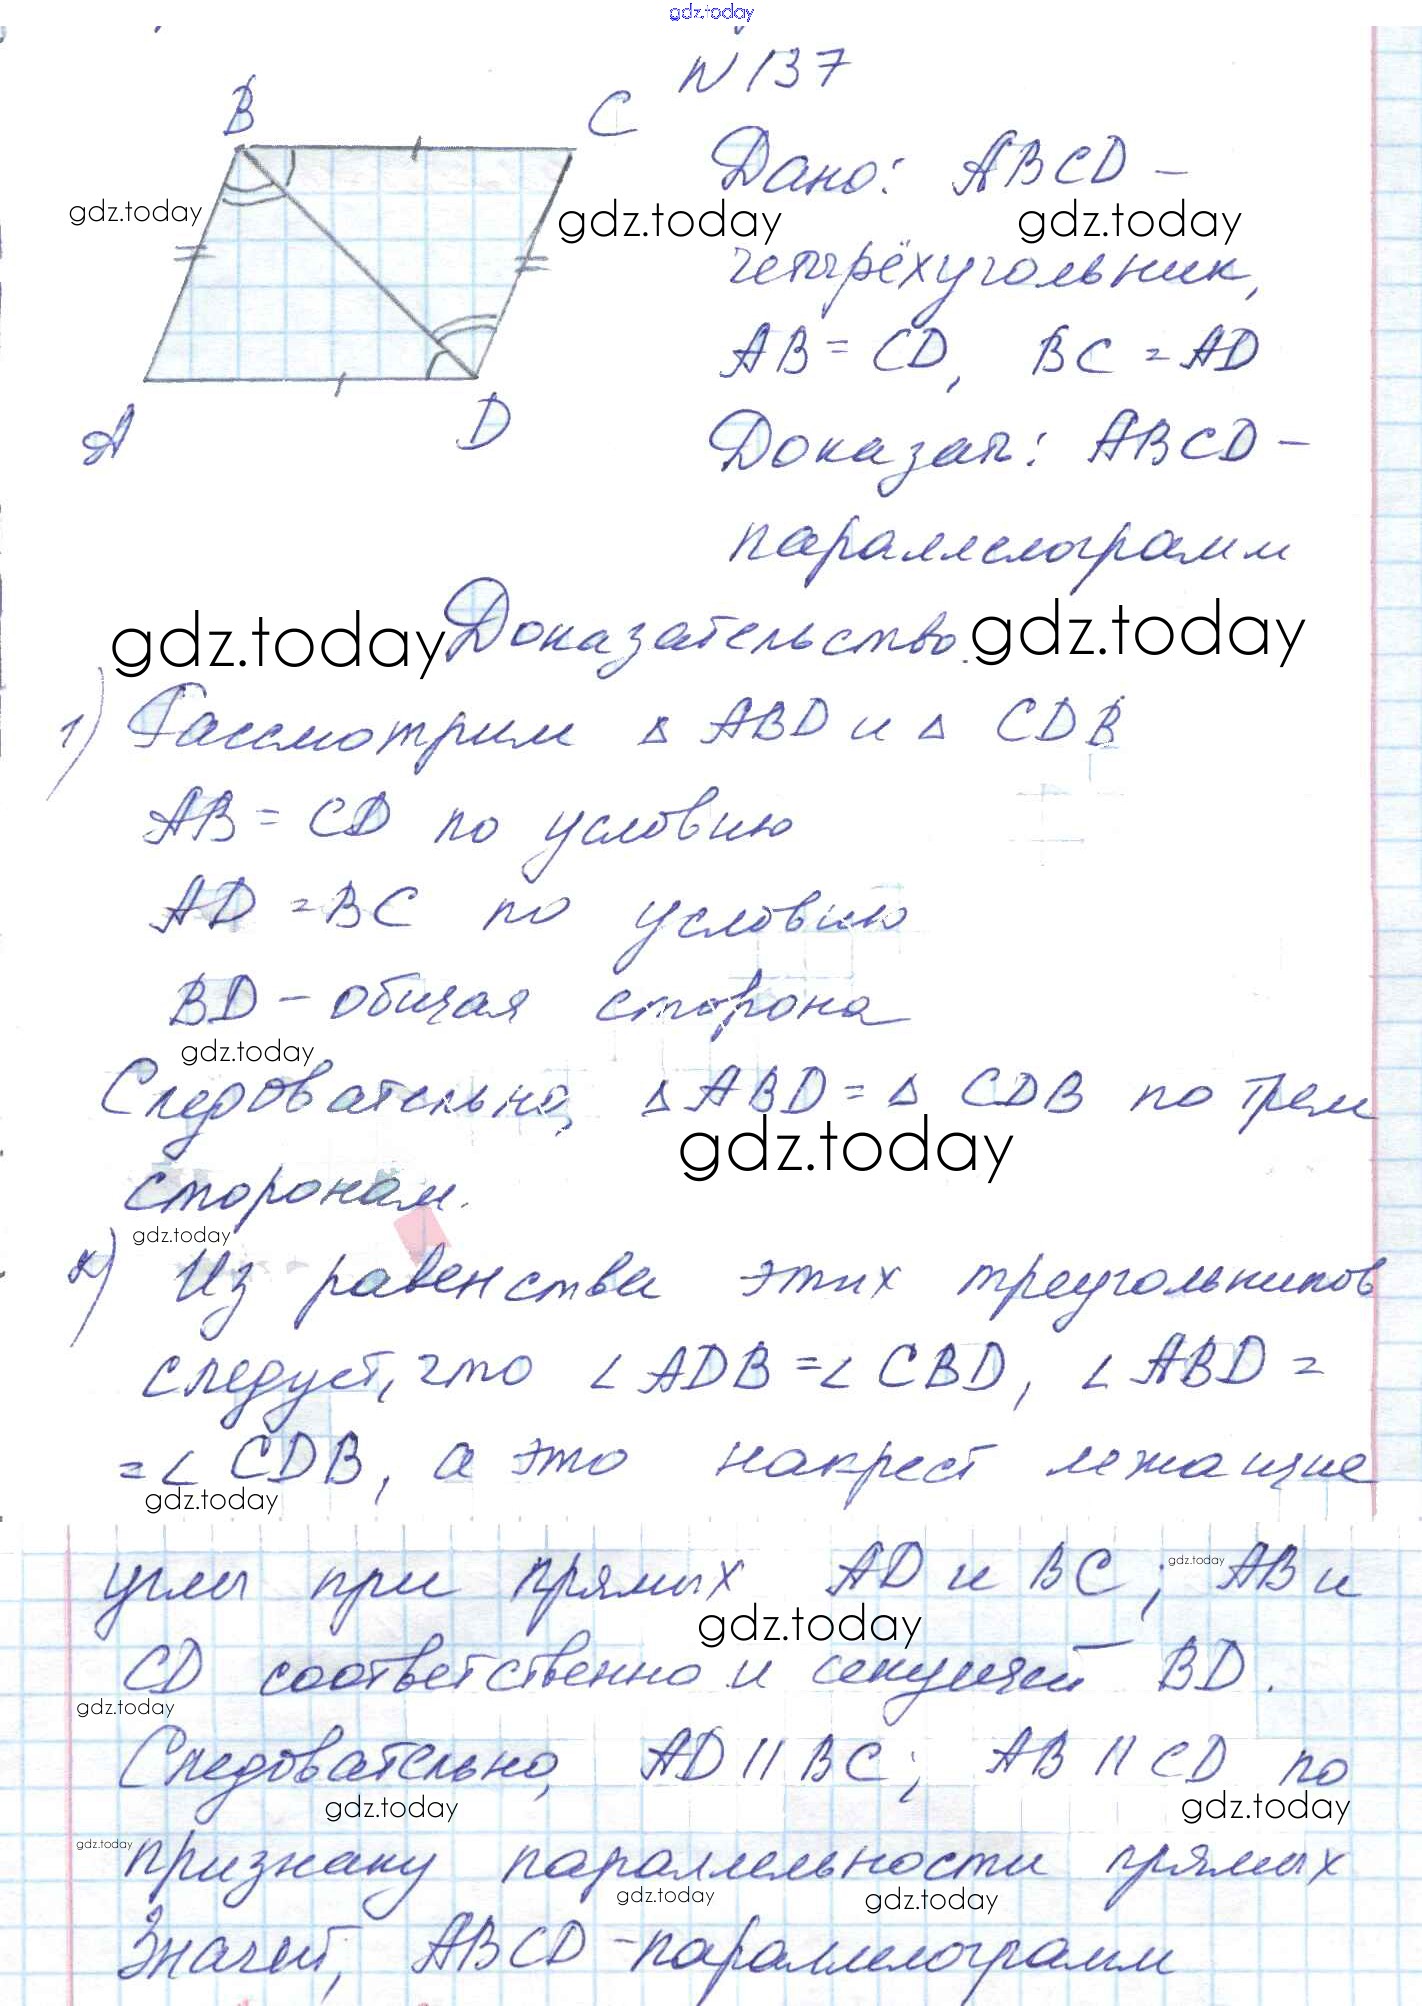 gdz.today
N 137
B
C
A
D
Дано: ABCD –
четырёхугольник,
AB = CD, BC = AD
Доказать: ABCD –
параллелограмм
gdz.today
gdz.today
gdz.today
Доказательство.
gdz.today
gdz.today
1) Рассмотрим △ ABD и △ CDB
AB = CD по условию
AD = BC по условию
BD – общая сторона
gdz.today
Следовательно, △ ABD = △ CDB по трем
gdz.today
сторонам.
gdz.today
2) Из равенства этих треугольников
следует, что ∠ ADB = ∠ CBD, ∠ ABD =
= ∠ CDB, а это накрест лежащие
gdz.today
углы при прямых AD и BC; AB и
gdz.today
gdz.today
CD соответственно и секущей BD.
gdz.today
Следовательно, AD || BC; AB || CD по
gdz.today
gdz.today
gdz.today
признаку параллельности прямых
gdz.today
gdz.today
Значит, ABCD – параллелограмм